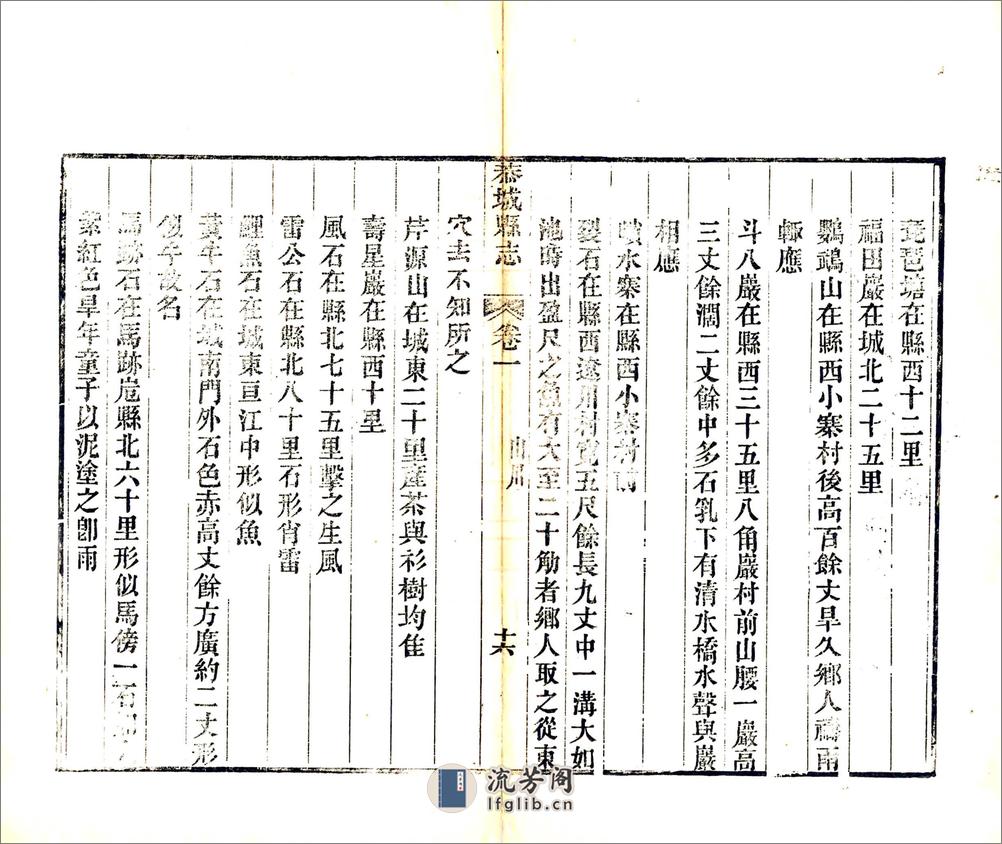 琵琶塘在縣西十二里
福田巖在城北二十五里
鸚鵡山在縣西小寨村後高百餘丈旱久鄉人禱雨
輒應
斗八巖在縣西三十五里八角巖村前山腰一巖高
三丈餘濶二丈餘中多石乳下有清水橋水聲與巖
相應
噴水寨在縣西小寨村前
裂石在縣西遼川村寬五尺餘長九丈中一溝大如
池時出盈尺之魚有大至二十觔者鄉人取之從東
穴去不知所之
恭城縣志
卷一
山川
十六
芹源山在城東二十里產茶與衫樹均佳
壽星巖在縣西十里
風石在縣北七十五里擊之生風
雷公石在縣北八十里石形肖雷
鯉魚石在城東亘江中形似魚
黃牛石在城南門外石色赤高丈餘方廣約二丈形
似牛故名
馬跡石在馬跡岩縣北六十里形似馬傍一石
紫紅色旱年童子以泥塗之卽雨
流芳阁
lfglib.cn